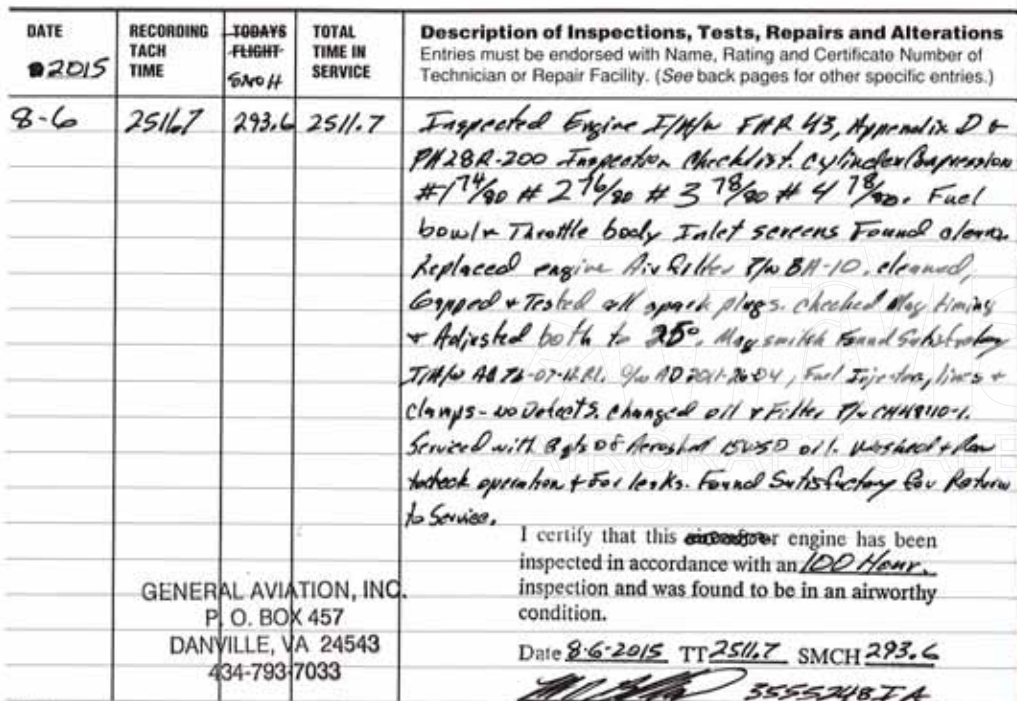 DATE
2015
RECORDING TACH TIME
TODAYS FLIGHT
SMOH
TOTAL TIME IN SERVICE
Description of Inspections, Tests, Repairs and Alterations
Entries must be endorsed with Name, Rating and Certificate Number of
Technician or Repair Facility. (See back pages for other specific entries.)
8-6 2511.7 293.6 2511.7 Inspected Engine I/A/W FAR 43, Appendix D &
PA28R-200 Inspection Checklist. Cylinder Compression
#1 74/80 #2 76/80 #3 78/80 #4 78/80. Fuel
bowl & Throttle body Inlet screens Found clean.
Replaced engine Air Filter P/N BA-10. cleaned,
Gapped & Tested all spark plugs. checked Mag timing
& Adjusted both to 25°. Mag switch Found Satisfactory
I/A/W AD 76-07-12 R1. C/W AD 2011-26-04, Fuel Injectors, lines &
clamps - no Defects. Changed oil & Filter P/N CH48110-1.
Serviced with 8 qts of Aeroshell 15W50 oil. Washed & Ran
to check operation & For leaks. Found Satisfactory For Return
to Service.
I certify that this engine has been
inspected in accordance with an 100 Hour.
inspection and was found to be in an airworthy
condition.
GENERAL AVIATION, INC.
P. O. BOX 457
DANVILLE, VA 24543
434-793-7033
Date 8-6-2015 TT 2511.7 SMOH 293.6
3555248 IA